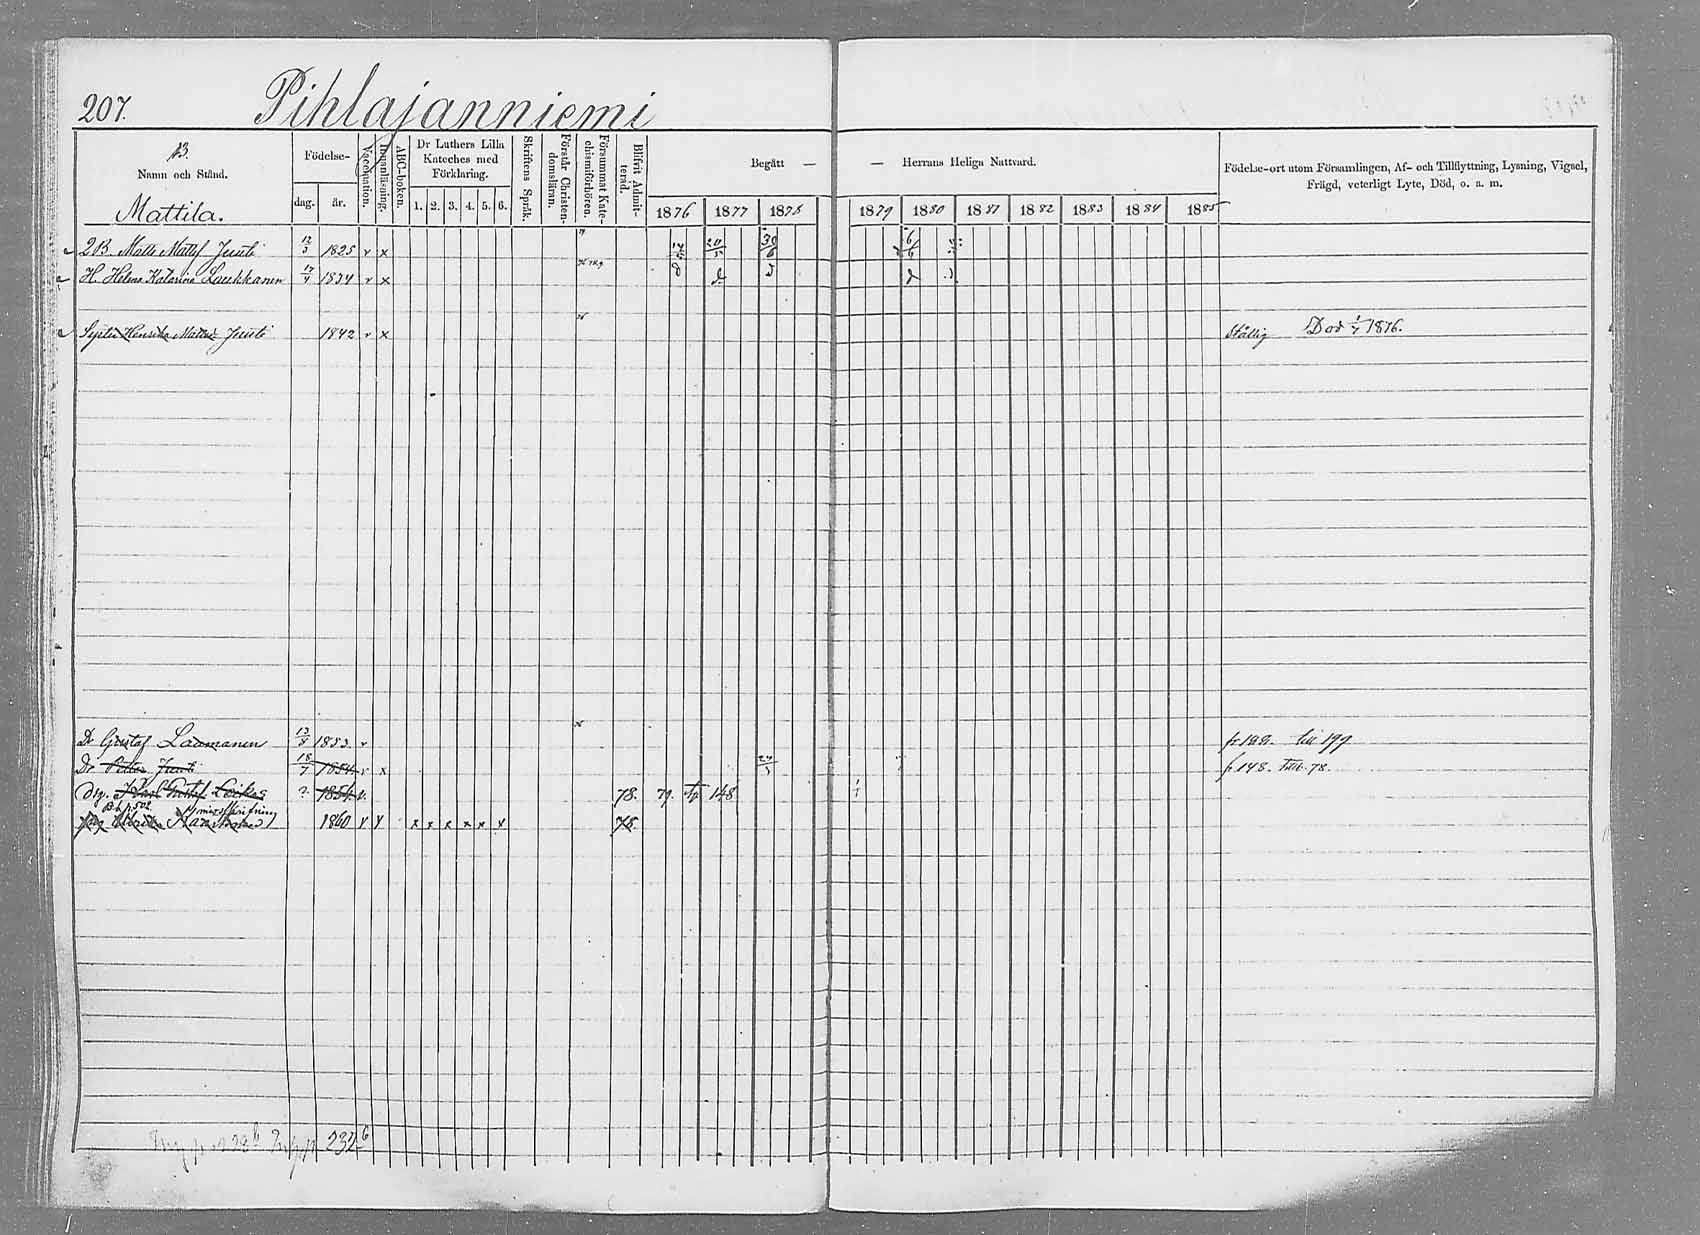 207. Pihlajanniemi
B.
Namn och Stånd.
Mattila.
Födelse-
dag. år.
Vaccination.
Innanläsning.
ABC-boken.
Dr Luthers Lilla
Kateches med
Förklaring.
1. 2. 3. 4. 5. 6.
Skriftens Språk.
Förstår Christen-
domsläran.
Försummat Kate-
chismiförhören.
Blifvit Admit-
terad.
Begått — — Herrans Heliga Nattvard.
1876 1877 1878 1879 1880 1881 1882 1883 1884 1885
Födelse-ort utom Församlingen, Af- och Tillflyttning, Lysning, Vigsel,
Frägd, veterligt Lyte, Död, o. a. m.
QB. Matts Mattsf Juuti 12/3 1825 v x
H. Helena Katarina Laukkanen 17/4 1834 v x
Syster Henrika Juuti 1842 v x Död 1/7 1876.
Dr Gustaf Laamanen 13/8 1853 v fr 199
Dr Petter Juuti 18/7 1854 v x 24/3 fr 148. 78.
Drg. Gustaf ? 1854 v. 78. 79. 148 1/1
p. 502 misskrifning
Ulrika 1860 v v x x x x x x 78.
232